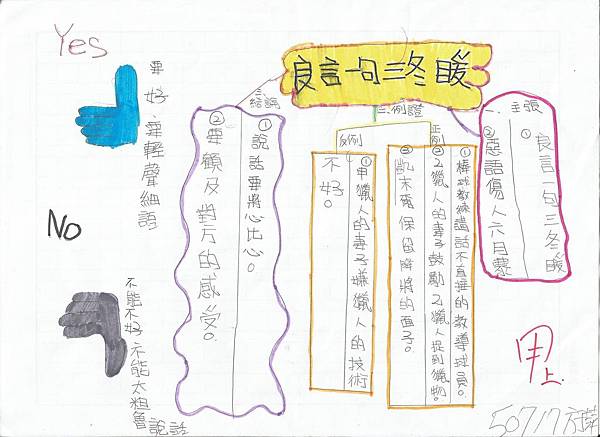 良言一句三冬暖
一、主張
① 良言一句三冬暖
② 惡語傷人六月寒
二、例證
正例
①棒球教練講話不直接的教導球員。
②乙獵人的妻子鼓勵乙獵人捉到獵物。
③凱末爾保留降將的面子。
反例
①甲獵人的妻子嫌獵人的技術
不好。
三、結語
①說話要將心比心。
②要顧及對方的感受。
Yes
要好 要輕聲細語
No
不能不好 不能太粗魯
說話
甲上
50717方